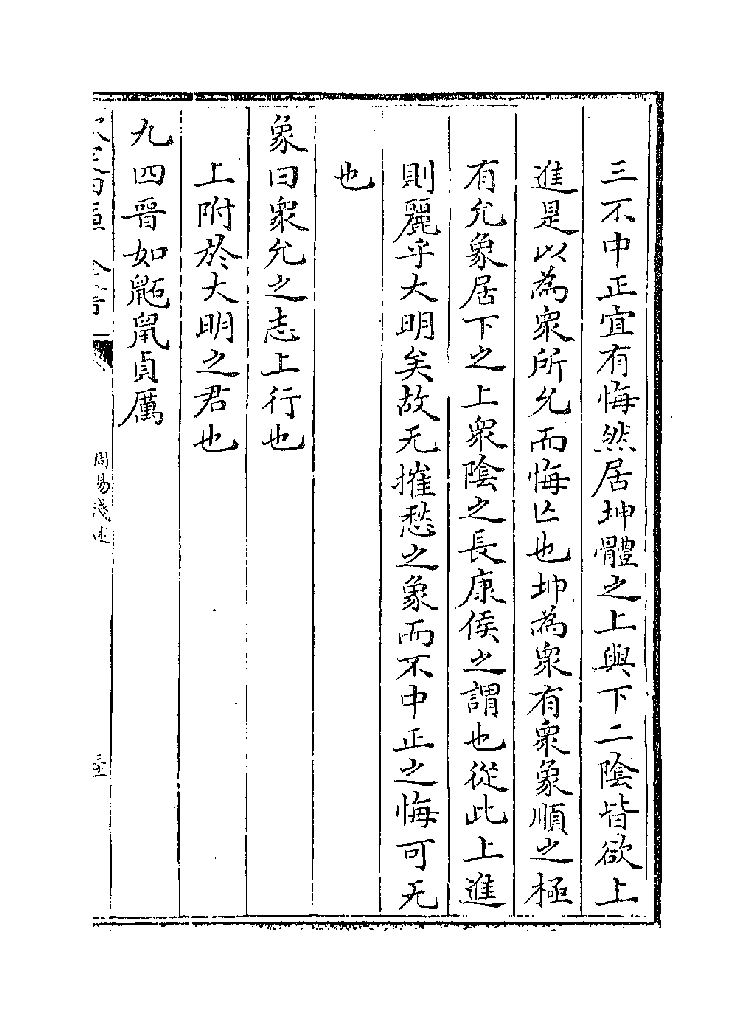 三不中正宜有悔然居坤體之上與下二陰皆欲上
進是以為衆所允而悔亡也坤為衆有衆象順之極
有允象居下之上衆陰之長康侯之謂也從此上進
則麗乎大明矣故无摧愁之象而不中正之悔可无
也
象曰衆允之志上行也
上附於大明之君也
九四晉如鼫鼠貞厲
周易淺述